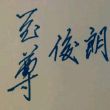 至尊
俊朗